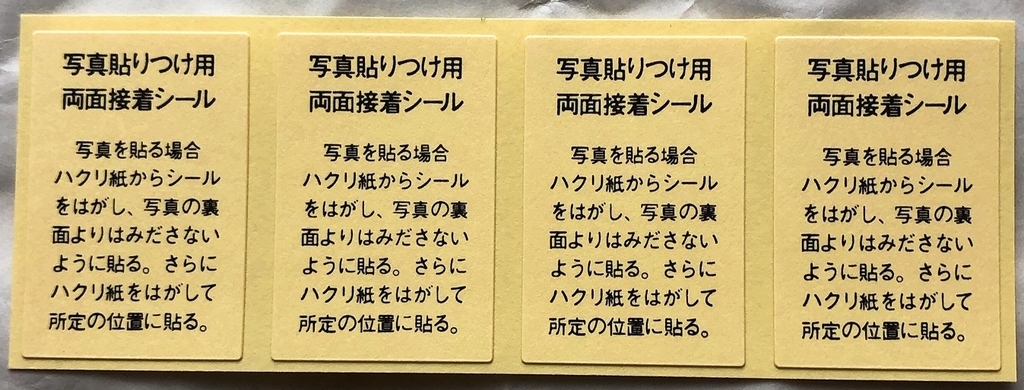 写真貼りつけ用
両面接着シール
写真を貼る場合
ハクリ紙からシール
をはがし、写真の裏
面よりはみださない
ように貼る。さらに
ハクリ紙をはがして
所定の位置に貼る。
写真貼りつけ用
両面接着シール
写真を貼る場合
ハクリ紙からシール
をはがし、写真の裏
面よりはみださない
ように貼る。さらに
ハクリ紙をはがして
所定の位置に貼る。
写真貼りつけ用
両面接着シール
写真を貼る場合
ハクリ紙からシール
をはがし、写真の裏
面よりはみださない
ように貼る。さらに
ハクリ紙をはがして
所定の位置に貼る。
写真貼りつけ用
両面接着シール
写真を貼る場合
ハクリ紙からシール
をはがし、写真の裏
面よりはみださない
ように貼る。さらに
ハクリ紙をはがして
所定の位置に貼る。